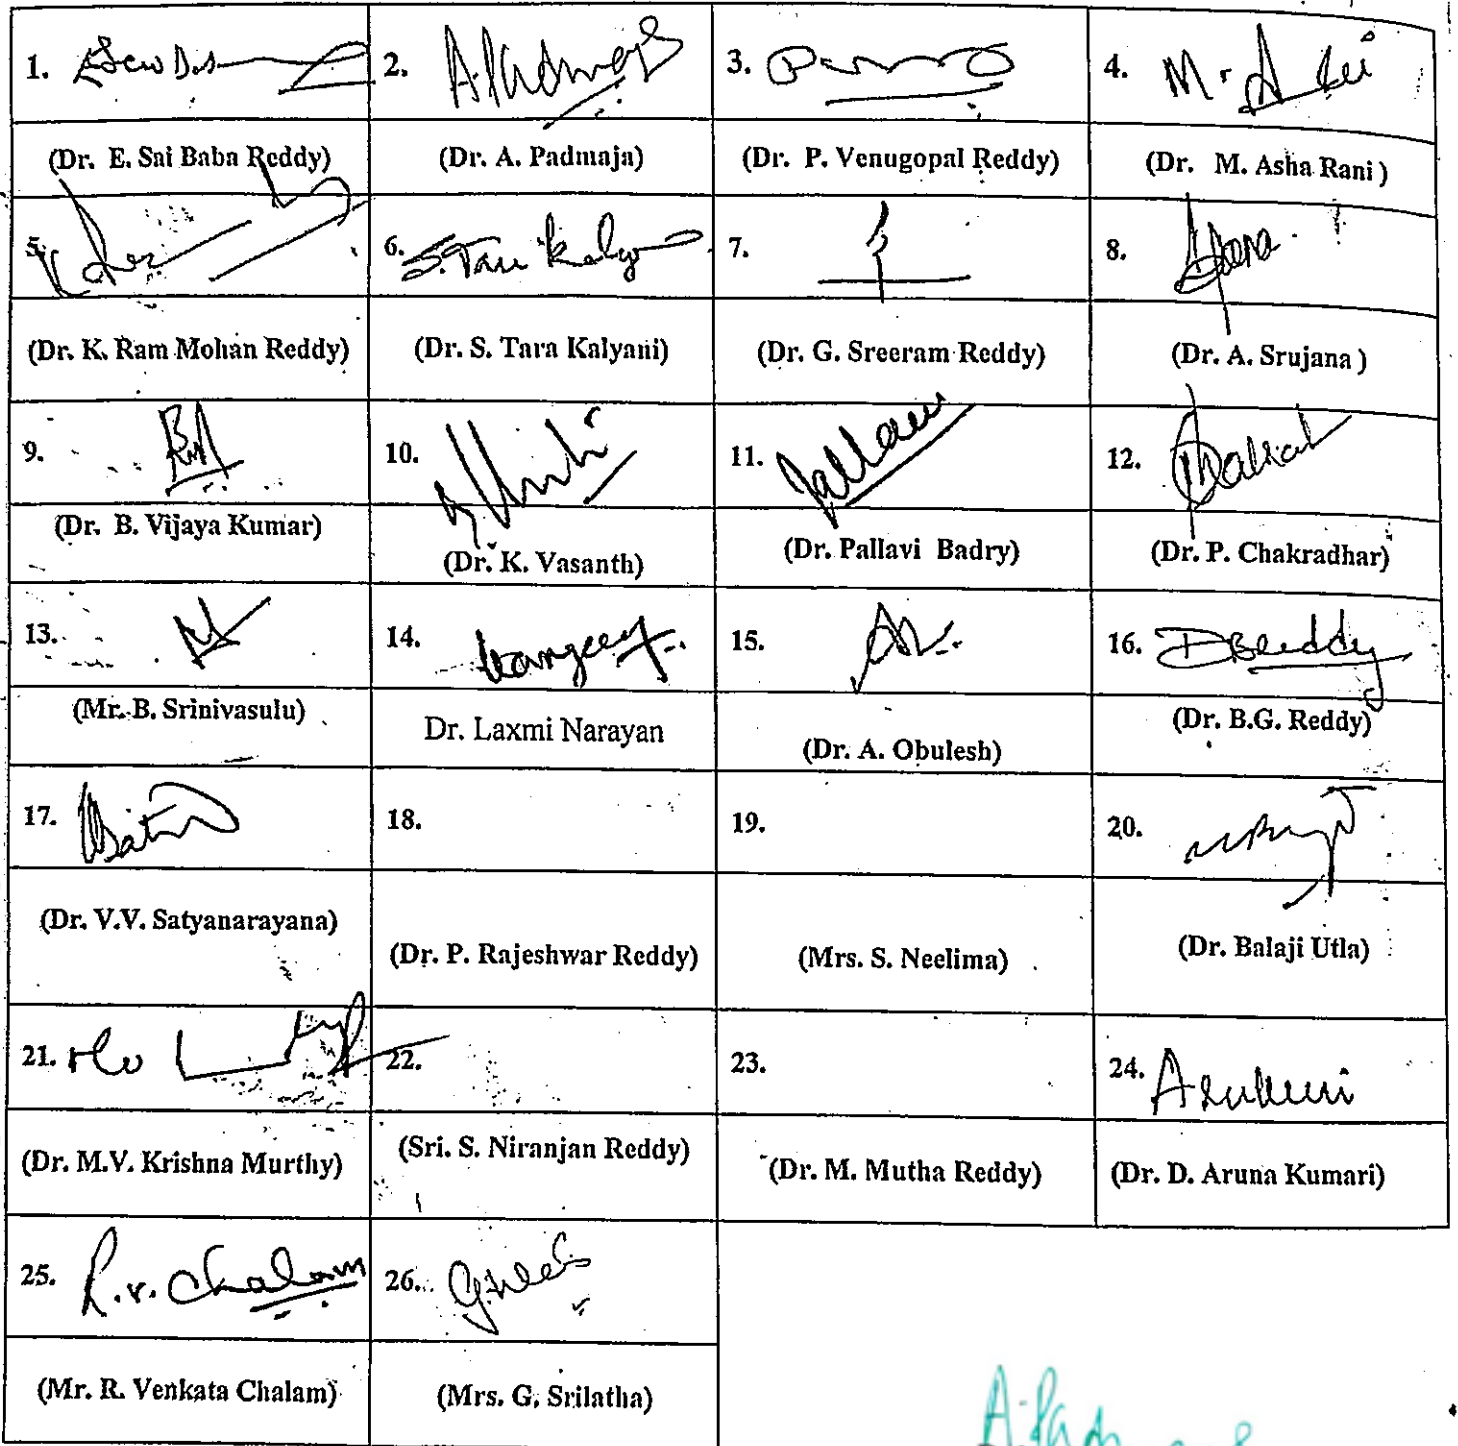 1. 2. A. Padmaja 3. 4. M. A
(Dr. E. Sai Baba Reddy) (Dr. A. Padmaja) (Dr. P. Venugopal Reddy) (Dr. M. Asha Rani )
5. 6. S. Tara Kalyani 7. 8.
(Dr. K. Ram Mohan Reddy) (Dr. S. Tara Kalyani) (Dr. G. Sreeram Reddy) (Dr. A. Srujana )
9. 10. 11. Pallavi 12.
(Dr. B. Vijaya Kumar) (Dr. K. Vasanth) (Dr. Pallavi Badry) (Dr. P. Chakradhar)
13. 14. 15. 16. DBReddy
(Mr. B. Srinivasulu) Dr. Laxmi Narayan (Dr. A. Obulesh) (Dr. B.G. Reddy)
17. 18. 19. 20.
(Dr. V.V. Satyanarayana) (Dr. P. Rajeshwar Reddy) (Mrs. S. Neelima) (Dr. Balaji Utla)
21. 22. 23. 24.
(Dr. M.V. Krishna Murthy) (Sri. S. Niranjan Reddy) (Dr. M. Mutha Reddy) (Dr. D. Aruna Kumari)
25. R.V. Chalam 26.
(Mr. R. Venkata Chalam) (Mrs. G. Srilatha)